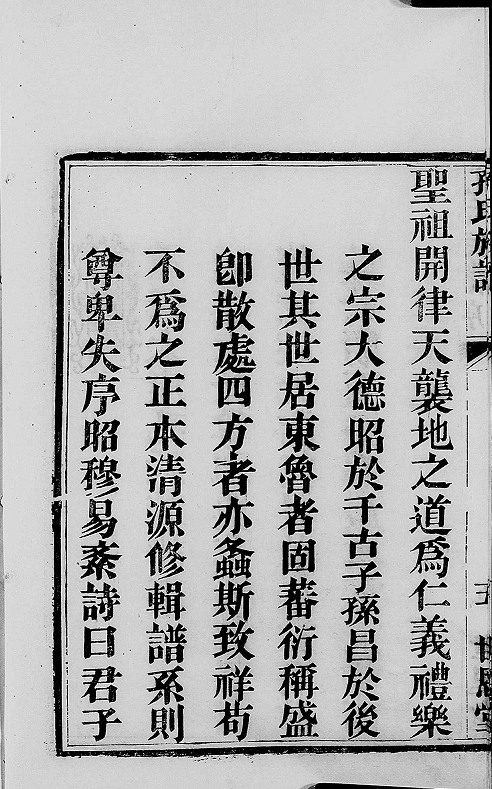 孔氏族譜
五
聖祖開律天襲地之道爲仁義禮樂
之宗大德昭於千古子孫昌於後
世其世居東魯者固蕃衍稱盛
卽散處四方者亦螽斯致祥苟
不爲之正本清源修輯譜系則
尊卑失序昭穆易紊詩曰君子